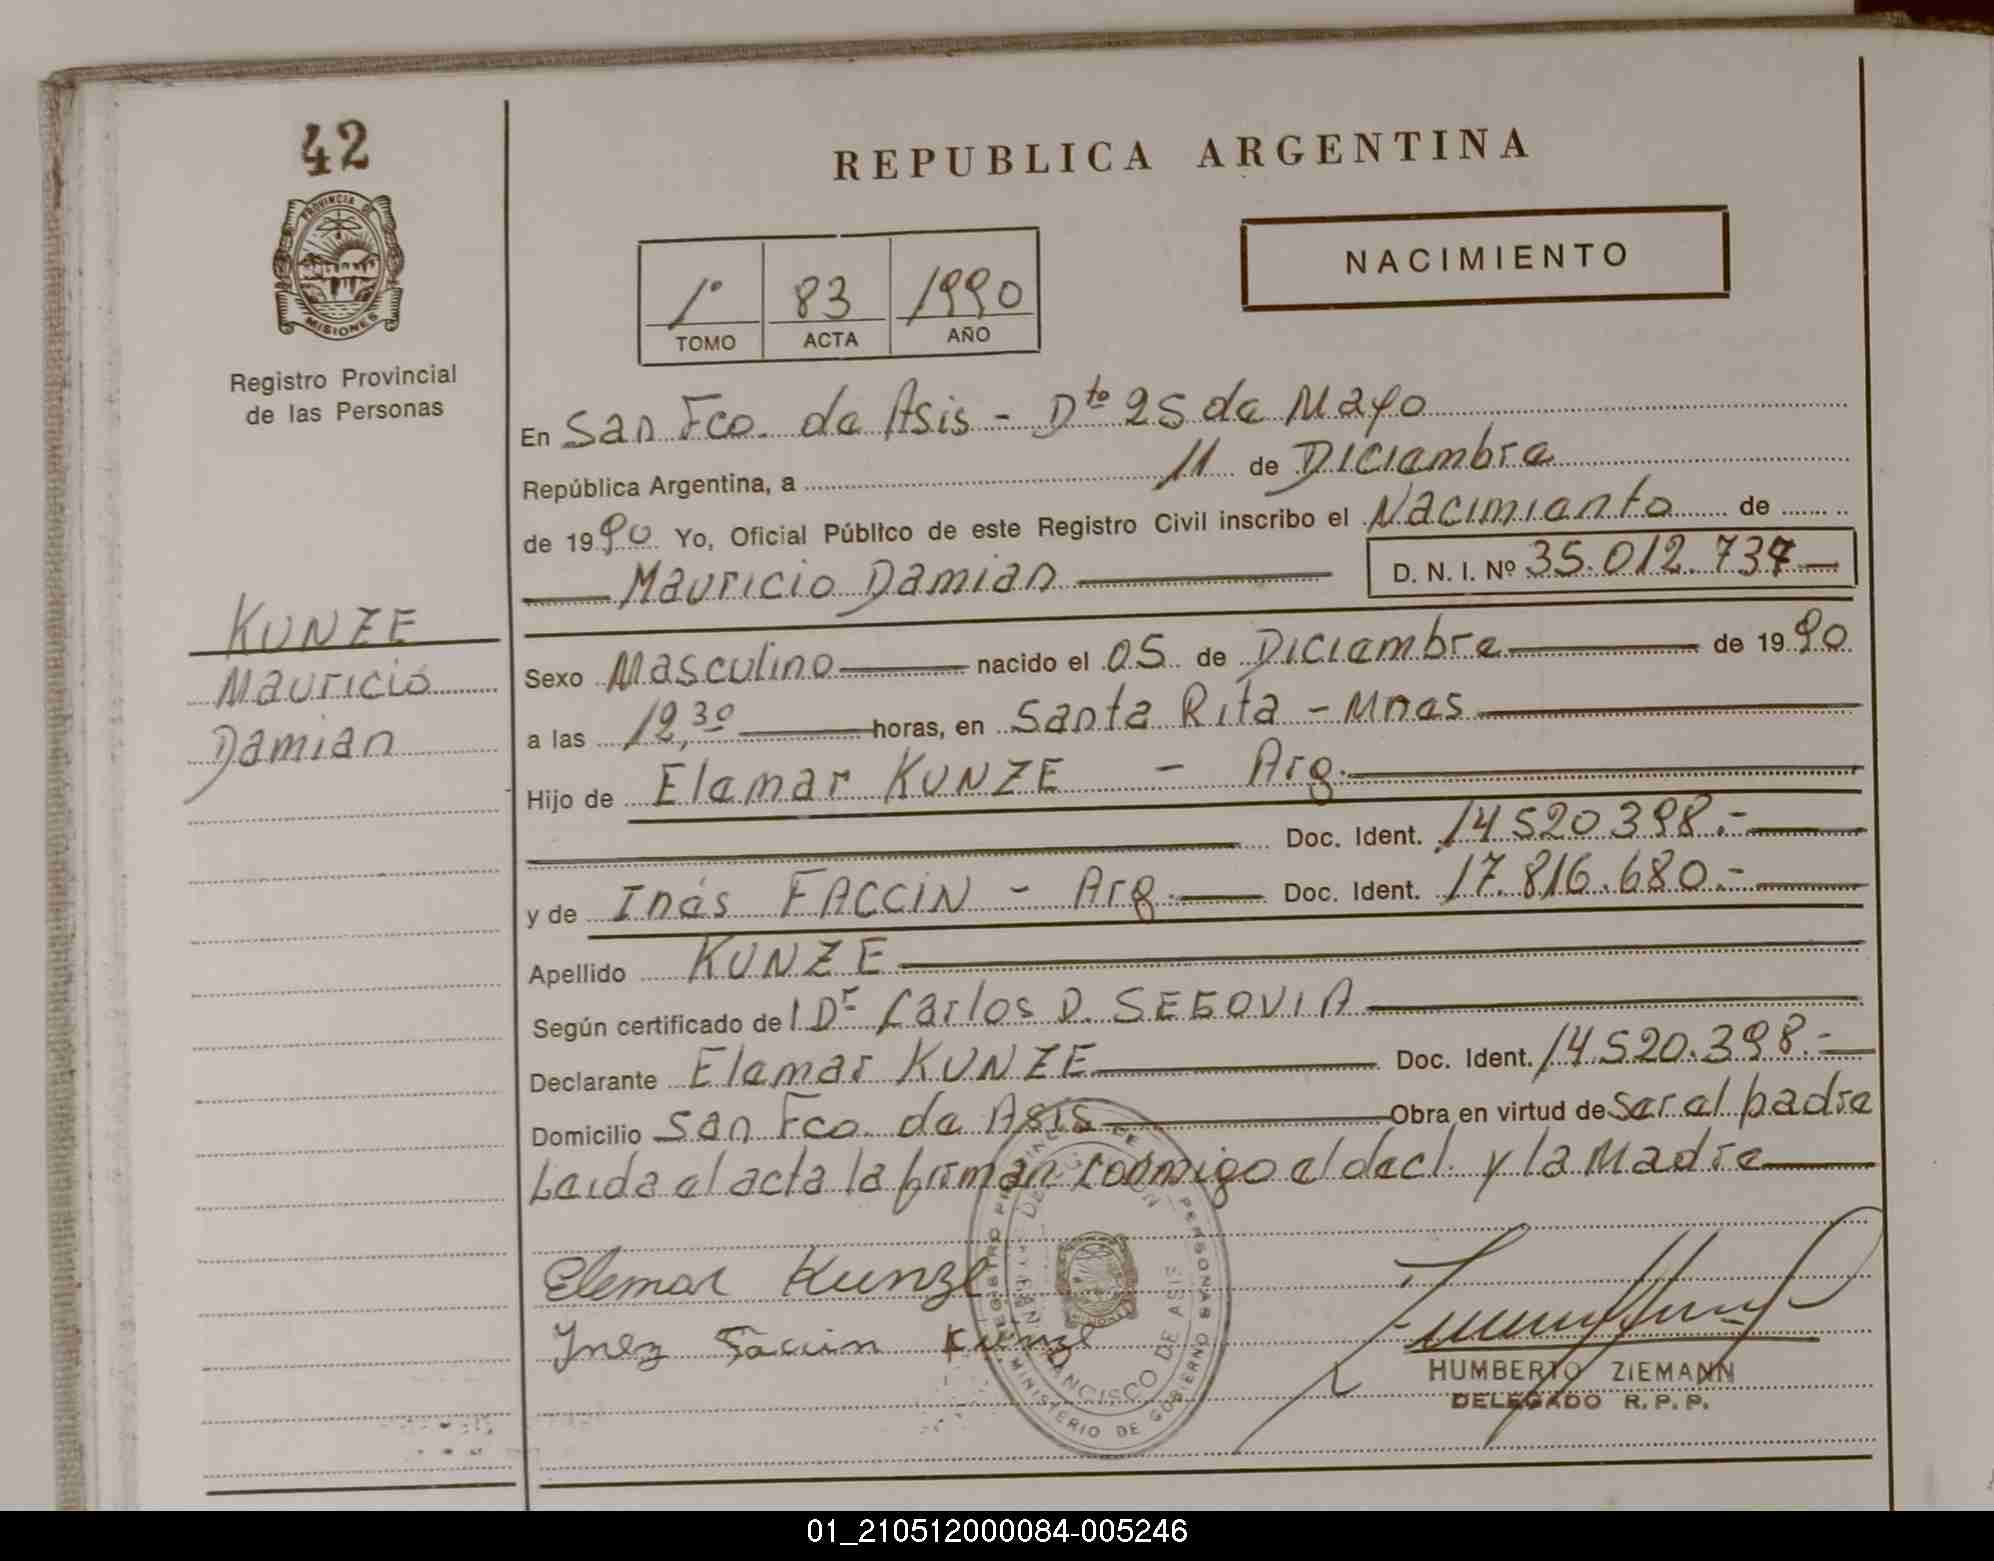 42
PROVINCIA DE
MISIONES
Registro Provincial
de las Personas
KUNZE
Mauricio
Damian
REPUBLICA ARGENTINA
1° 83 1990
TOMO ACTA AÑO
NACIMIENTO
En San Fco. de Asis - Dto 25 de Mayo
República Argentina, a 11 de Diciembre
de 1990 Yo, Oficial Público de este Registro Civil inscribo el Nacimiento de
Mauricio Damian D. N. I. Nº 35.012.737
Sexo Masculino nacido el 05 de Diciembre de 1990
a las 12,30 horas, en Santa Rita - Mnes
Hijo de Elemar KUNZE - Arg.
Doc. Ident. 14.520.398.-
y de Inés FACCIN - Arg. Doc. Ident. 17.816.680.-
Apellido KUNZE
Según certificado de l Dr Carlos D. SEGOVIA
Declarante Elemar KUNZE Doc. Ident. 14.520.398.-
Domicilio San Fco. de Asis Obra en virtud de ser el padre
Leida el acta la firman conmigo el decl. y la Madre
Elemar Kunze
Ynez Faccin Kunze
MINISTERIO DE GOBIERNO
FRANCISCO DE ASIS
HUMBERTO ZIEMANN
DELEGADO R.P.P.
01_210512000084-005246